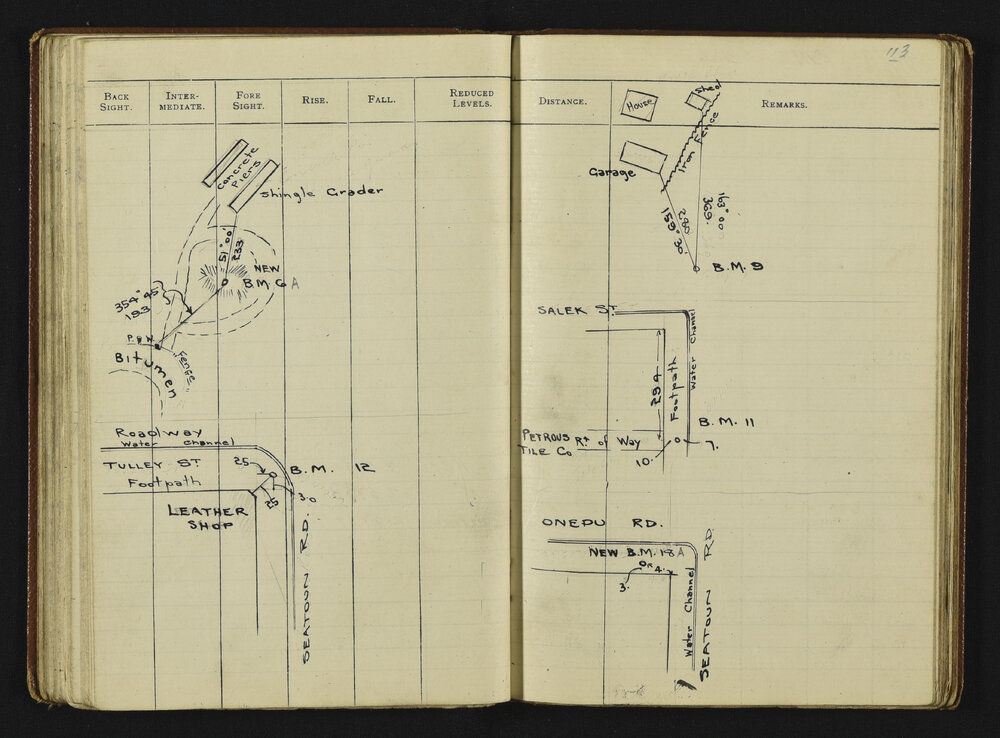 113
BACK SIGHT.
INTER-MEDIATE.
FORE SIGHT.
RISE.
FALL.
REDUCED LEVELS.
Concrete
Piers
Shingle Grader
51° 00'
233
NEW
B.M. 6 A
354° 45'
193
Fence
Bitumen
Roadway
Water Channel
TULLEY ST
Footpath
25
B.M. 12
25
3.0
LEATHER
SHOP
SEATOUN RD.
DISTANCE.
REMARKS.
House
Shed
Iron Fence
Garage
159° 30'
280
163° 00'
369.
B.M. 9
SALEK ST.
Water Channel
Footpath
294
B.M. 11
PETROUS
TILE Co
Rt of Way
10.
7.
ONEPU RD.
NEW B.M. 18 A
4.
3.
Water Channel
SEATOUN RD